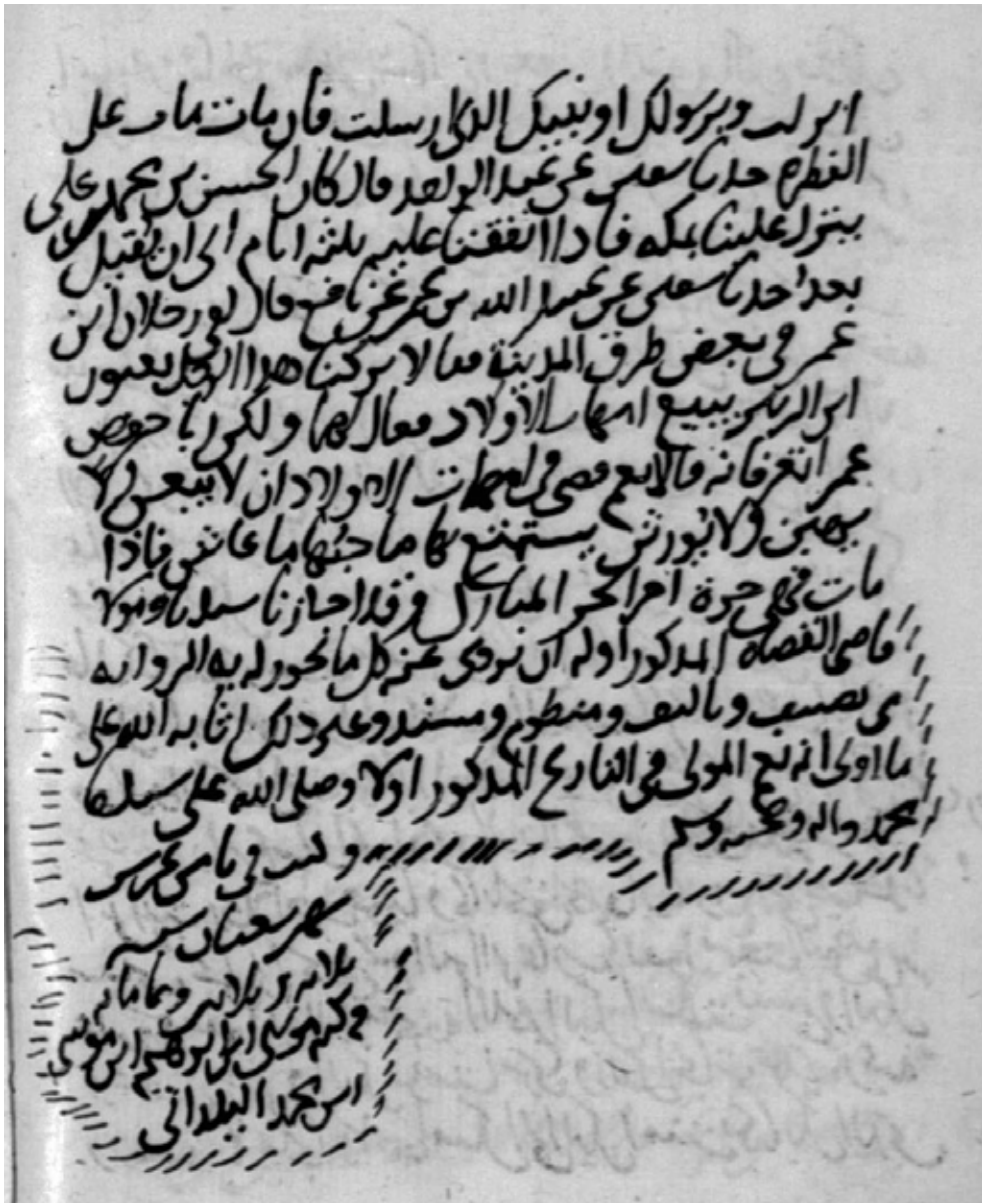 انزلت وبرسولك او نبيك الذي ارسلت فان مات مات على
الفطرة حدثنا سعين عن عبد الواحد قال كان الحسن بن محمد بن علي
ينزل علينا بمكة فاذا انفقنا عليه ثلثة ايام ابى ان يقبل
بعد احدثنا سعين عن عبيد الله بن عمر عن نافع قال لقي رجلان ابن
عمر في بعض طرق المدينة فقالا تركنا هذا الرجل يعنون
ابن الزبير يبيع امهات الاولاد فقال لهما ولكن ابا حفص
عمر اتعرفانه قالا نعم قضى في امهات الاولاد ان لا يبعن ولا
يوهبن ولا يورثن يستمتع بها صاحبها ما عاش فاذا
مات فهي حرة اخر الجزء المبارك وقد اجازنا سيدنا ومولانا
قاضي القضاة المذكور اوله ان نروي عنه كل ما تجوز له به الرواية
من تصنيف وتاليف ومنظوم ومسند وغير ذلك اثابه الله على
ما اولى انه نعم المولى في التاريخ المذكور اولا وصلى الله على سيدنا
محمد واله وصحبه وسلم
وكتب في ثامن عشرين
شهر شعبان سنة
ثلاثة وثلاثين وثمانمائة
موسى ابن ابراهيم ابن موسى
ابن محمد البلداني